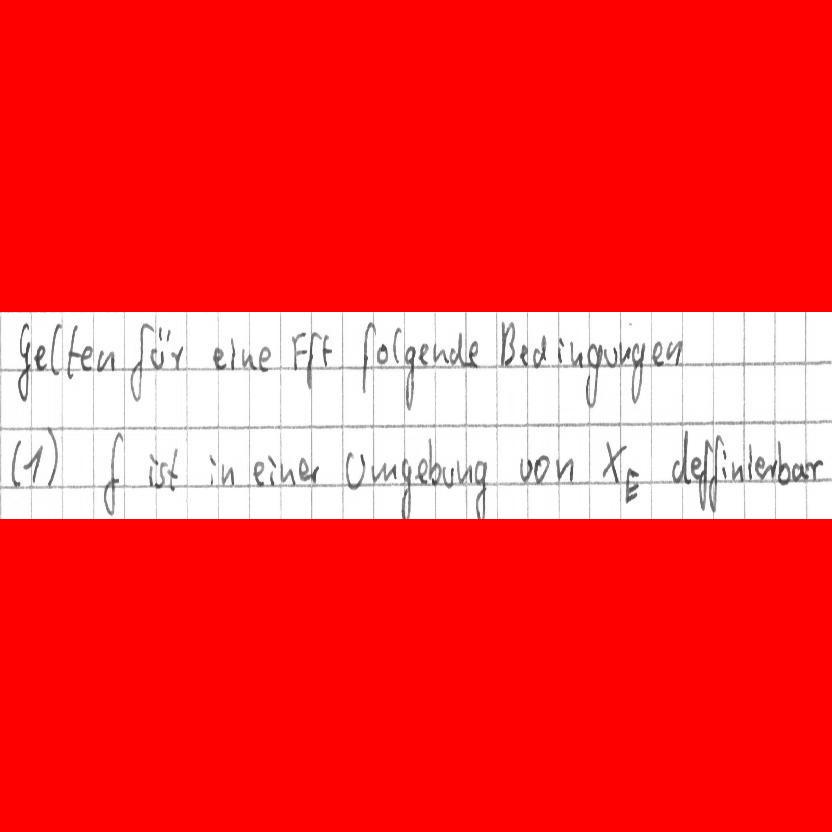 Gelten für eine Fft folgende Bedingungen
(1) f ist in einer Umgebung von X_E deffinierbar